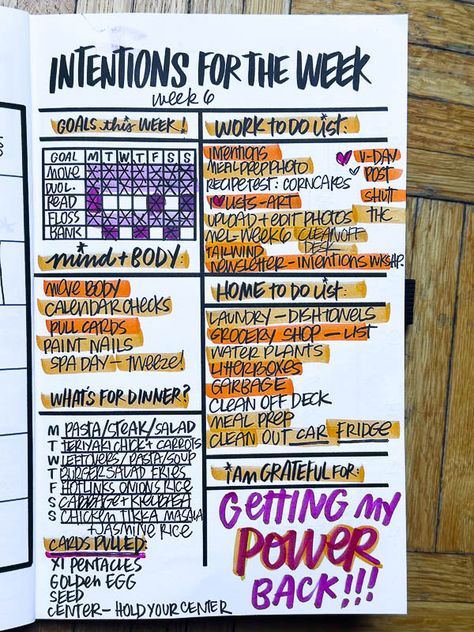 INTENTIONS FOR THE WEEK
week 6
GOALS this WEEK!
GOAL M T W T F S S
MOVE
DUOL.
READ
FLOSS
BANK
mind + BODY:
MOVE BODY
CALENDAR CHECKS
PULL CARDS
PAINT NAILS
SPA DAY - TWEEZE!
WHAT'S FOR DINNER?
M PASTA/STEAK/SALAD
T TERIYAKI CHICK + CARROTS
W LEFTOVERS/PASTA/SOUP
T BURGER SALAD FRIES
F HOTLINKS ONIONS RICE
S CABBAGE + KIELBASA
S CHICKEN TIKKA MASALA
+ JASMINE RICE
CARDS PULLED:
XI PENTACLES
GOLDEN EGG
SEED
CENTER - HOLD YOUR CENTER
WORK TO DO LIST:
INTENTIONS
MEAL PREP PHOTO
RECIPE TEST: CORNCAKES
LISTS - ART
UPLOAD + EDIT PHOTOS
MEL - WEEK 6
TAILWIND
NEWSLETTER - INTENTIONS WKSHP.
V-DAY
POST
SHUTT
THC
CLEAN OFF
DESK
HOME TO DO LIST:
LAUNDRY - DISHTOWELS
GROCERY SHOP - LIST
WATER PLANTS
LITTERBOXES
GARBAGE
CLEAN OFF DECK
MEAL PREP
CLEAN OUT CAR FRIDGE
*I AM GRATEFUL FOR:
GETTING MY
POWER
BACK!!!